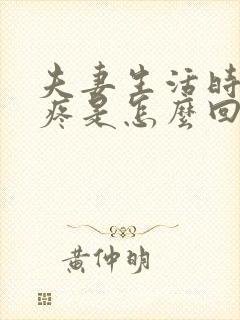 夫妻生活時
疼是怎麼回
黃仲明